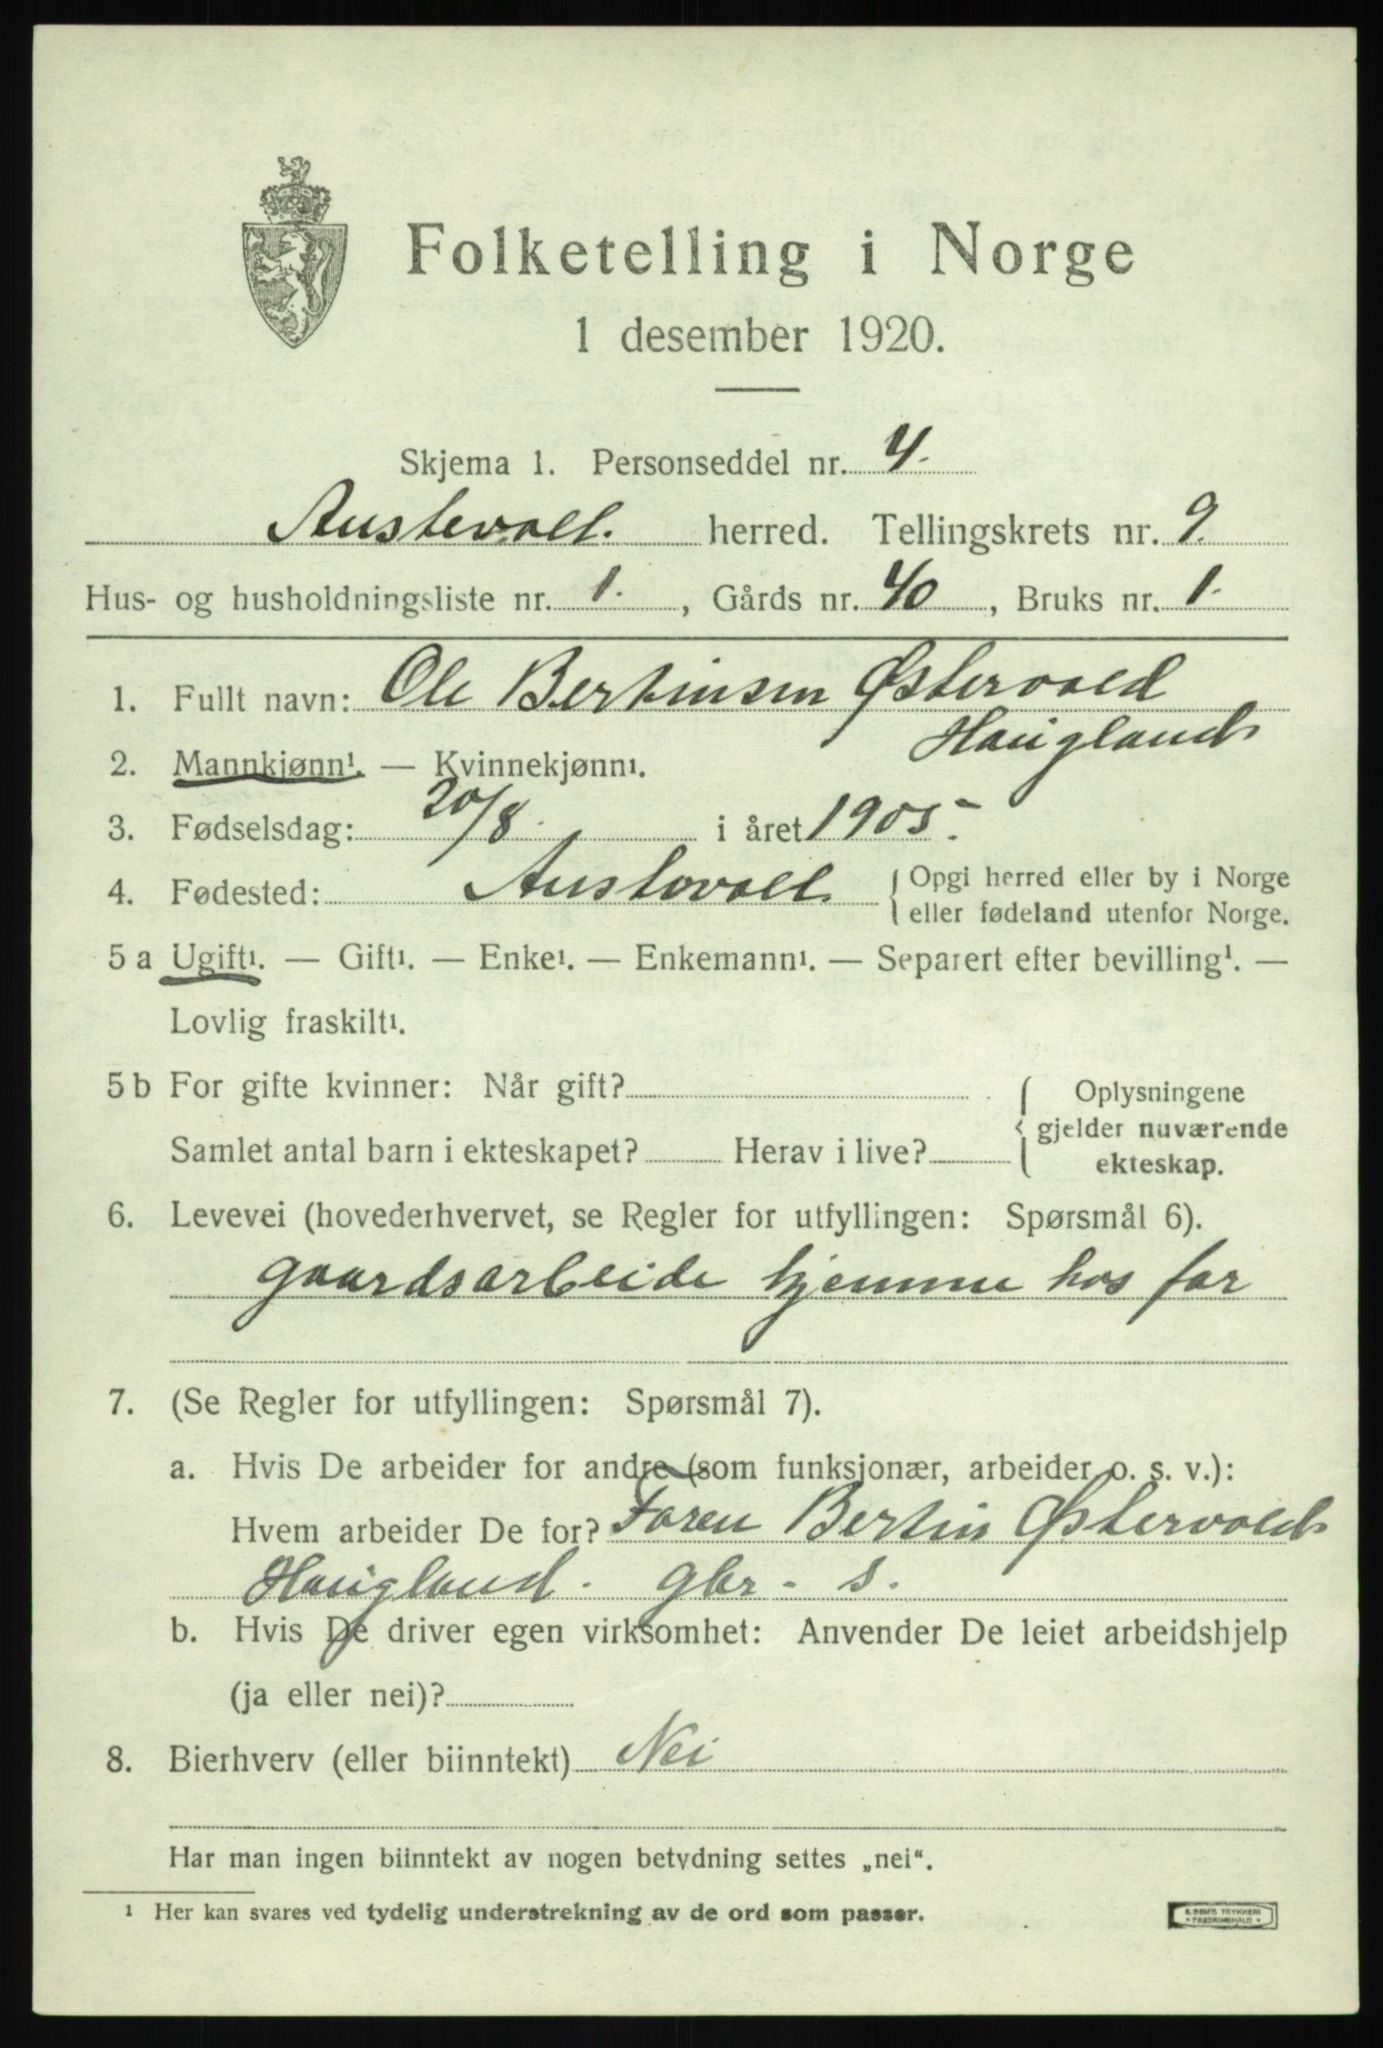 Folketelling i Norge
1 desember 1920.
Skjema 1. Personseddel nr. 4.
Austevoll. herred. Tellingskrets nr. 9.
Hus- og husholdningsliste nr. 1. , Gårds nr. 40 , Bruks nr. 1.
1. Fullt navn: Ole Bertinsen Østervold
Haugland
2. Mannkjønn¹. — Kvinnekjønn¹.
3. Fødselsdag: 20/8. i året 1905.
4. Fødested: Austevoll. { Opgi herred eller by i Norge
eller fødeland utenfor Norge.
5 a Ugift¹. — Gift¹. — Enke¹. — Enkemann¹. — Separert efter bevilling¹. —
Lovlig fraskilt¹.
5 b For gifte kvinner: Når gift? { Oplysningene
gjelder nuværende
Samlet antal barn i ekteskapet? Herav i live? ekteskap.
6. Levevei (hovederhvervet, se Regler for utfyllingen: Spørsmål 6).
gaardsarbeide hjemme hos far
7. (Se Regler for utfyllingen: Spørsmål 7).
a. Hvis De arbeider for andre (som funksjonær, arbeider o. s. v.):
Hvem arbeider De for? Faren Bertin Østervold
Haugland. gbr. s.
b. Hvis De driver egen virksomhet: Anvender De leiet arbeidshjelp
(ja eller nei)?
8. Bierhverv (eller biinntekt) Nei
Har man ingen biinntekt av nogen betydning settes „nei“.
¹ Her kan svares ved tydelig understrekning av de ord som passer.
E. SEM'S TRYKKERI
* FREDRIKSHALD *